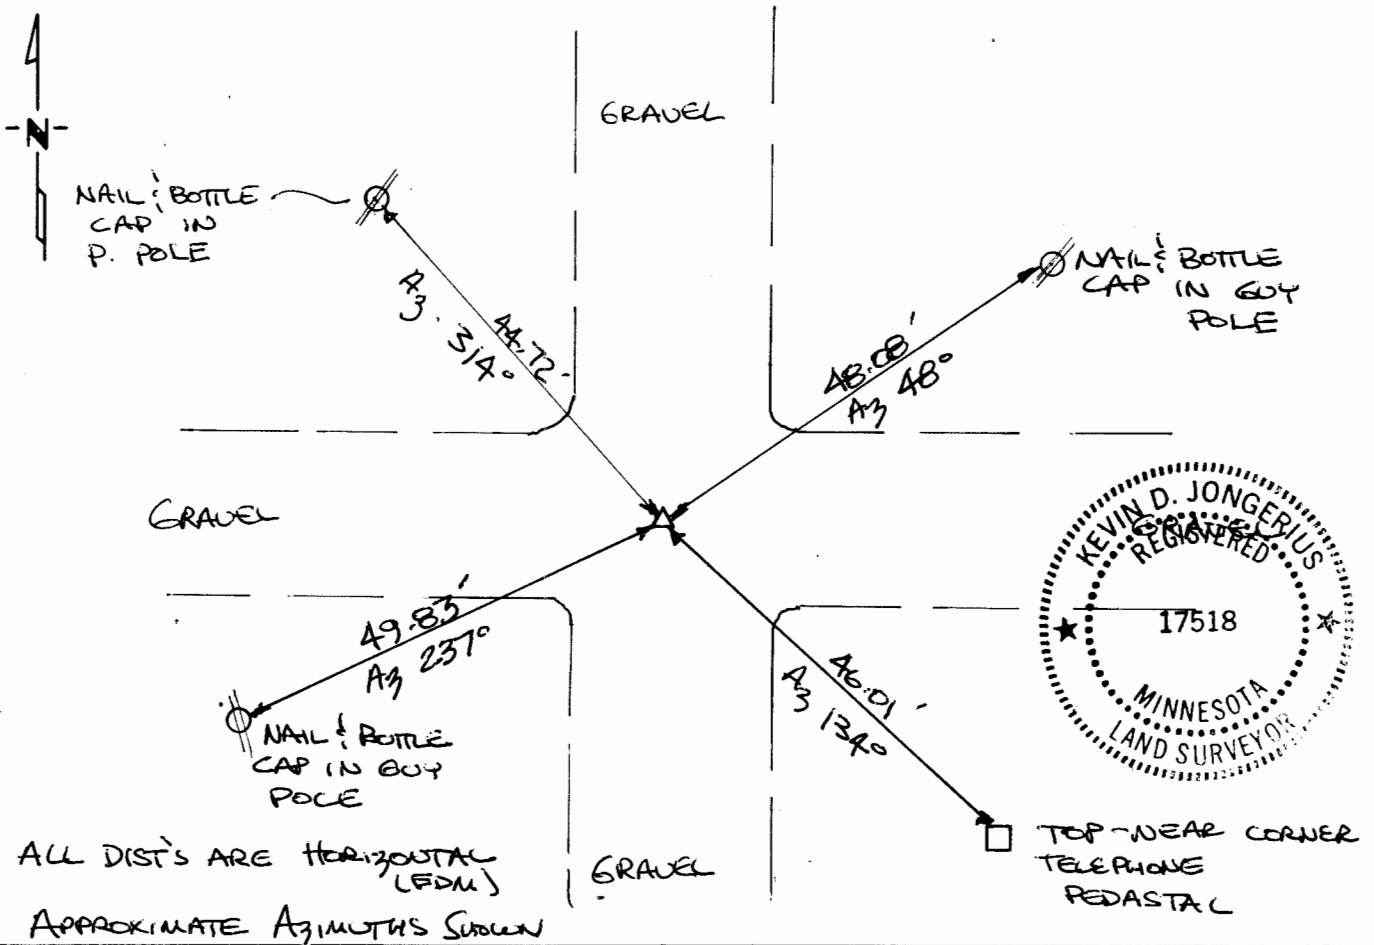 GRAVEL
N
NAIL & BOTTLE
CAP IN
P. POLE
NAIL & BOTTLE
CAP IN GUY
POLE
44.72'
Az. 314°
48.08'
Az 48°
GRAVEL
KEVIN D. JONGERIUS
GRAVEL
REGISTERED
17518
MINNESOTA
LAND SURVEYOR
49.83'
Az 237°
46.01'
Az 134°
NAIL & BOTTLE
CAP IN GUY
POLE
TOP-NEAR CORNER
TELEPHONE
PEDASTAL
GRAVEL
ALL DIST'S ARE HORIZONTAL
(EDM)
APPROXIMATE AZIMUTHS SHOWN